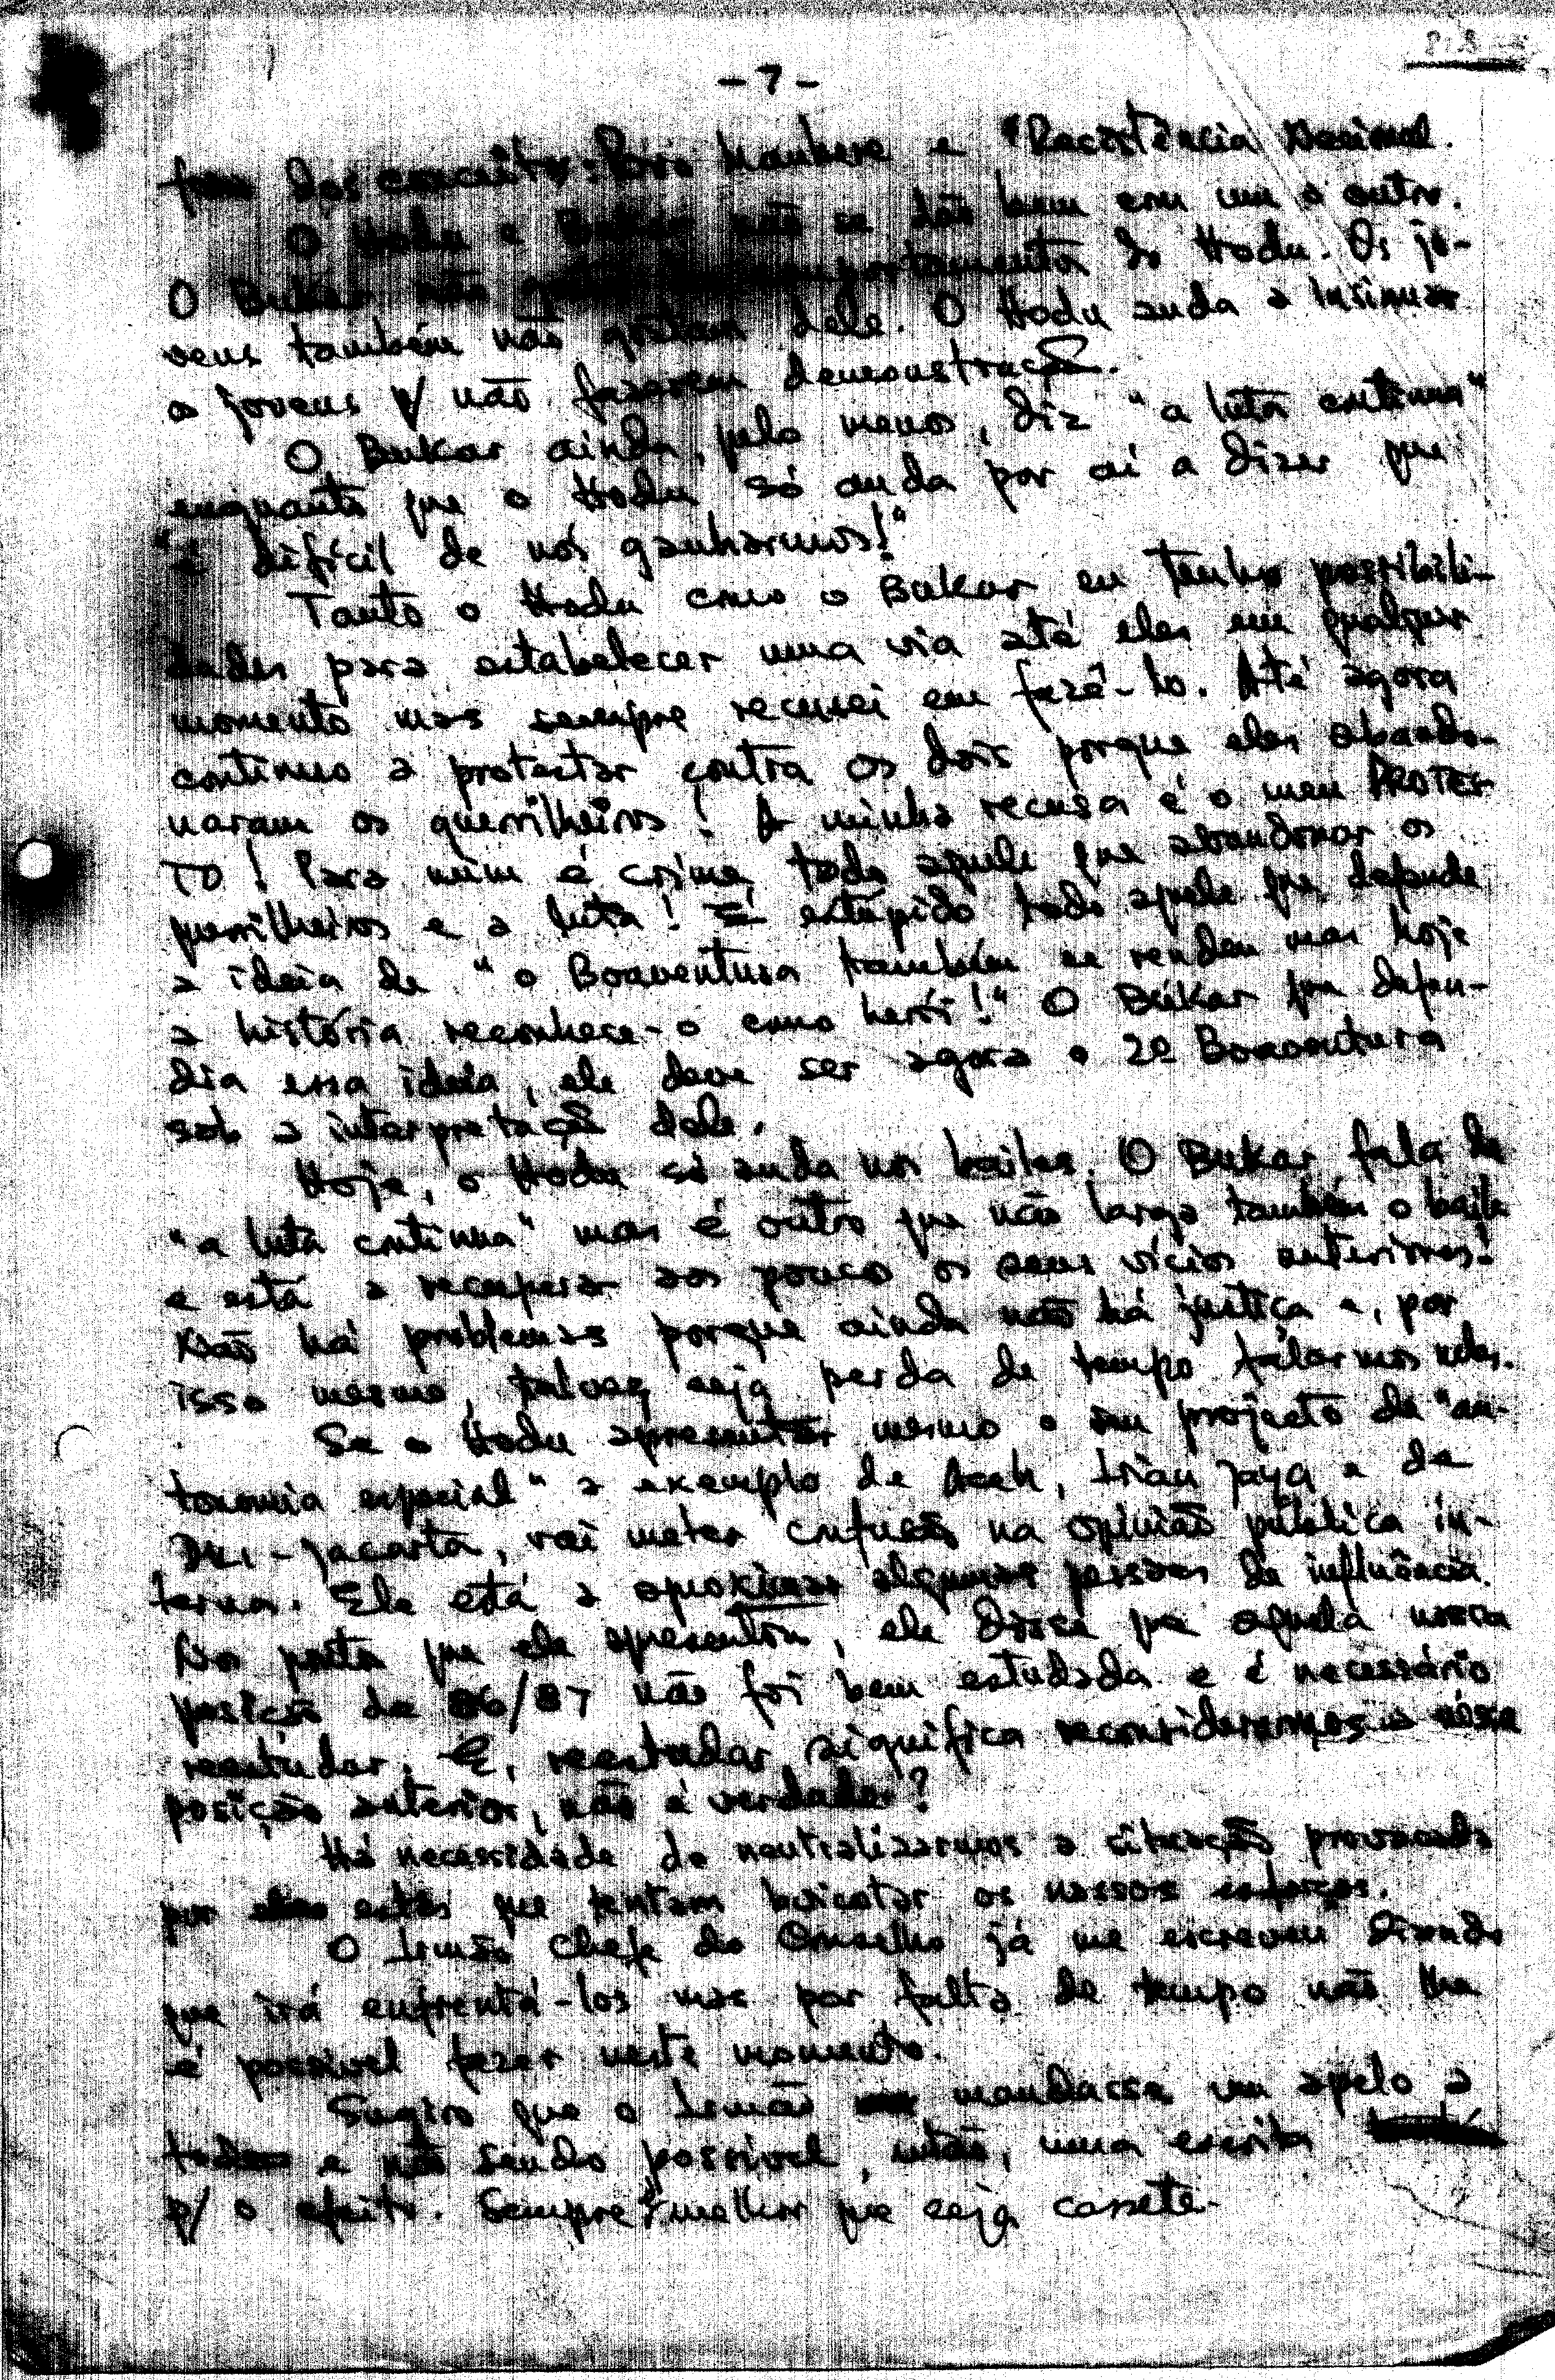 - 7 -
dos conceitos: Povo Maubere e "Resistência Nacional.
O Hodu e Bukar não se dão bem com um o outro.
O Bukar não comportamento do Hodu. Os jo-
vens também não gostam dele. O Hodu anda a insinuar
os jovens p/ não fazerem demonstração.
O Bukar ainda, pelo menos, diz "a luta continua"
enquanto que o Hodu só anda por aí a dizer que
"é difícil de nós ganharmos!"
Tanto o Hodu como o Bukar eu tenho possibili-
dades para estabelecer uma via até eles em qualquer
momento mas sempre recusei em fazê-lo. Até agora
continuo a protestar contra os dois porque eles abando-
naram os guerrilheiros! A minha recusa é o meu PROTES-
TO! Para mim é crime, todo aquele que abandonar os
guerrilheiros e a luta! É estúpido todo aquele que defende
a ideia de "o Boaventura também se rendeu mas hoje
a história reconhece-o como herói!" O Bukar que defen-
dia essa ideia, ele deve ser agora o 2º Boaventura
sob a interpretação dele.
Hoje, o Hodu só anda nos bailes. O Bukar fala da
"a luta continua" mas é outro que não larga também o baile
e está a recuperar aos poucos os seus vícios anteriores!
Não há problemas porque ainda não há justiça e, por
isso mesmo, talvez seja perda de tempo falarmos neles.
Se o Hodu apresentar mesmo o seu projecto de "au-
tonomia especial" a exemplo de Aceh, Irian Jaya e de
DKI-Jacarta, vai meter confusão na opinião pública in-
terna. Ele está a aproximar algumas pessoas de influência.
No ponto que ele apresentou, ele disse que aquela nossa
posição de 86/87 não foi bem estudada e é necessário
reestudar. E, reestudar significa reconsiderarmos a nossa
posição anterior, não é verdade?
Há necessidade de neutralizarmos a situação provocada
por estes que tentam boicotar os nossos esforços.
O Irmão Chefe do Conselho já me escreveu dizendo
que irá enfrentá-los mas por falta de tempo não lhe
é possível fazer neste momento.
Sugiro que o Irmão mandasse um apelo a
todos e não sendo possível, então, uma escrita
p/ o efeito. Sempre é melhor que seja cassete.